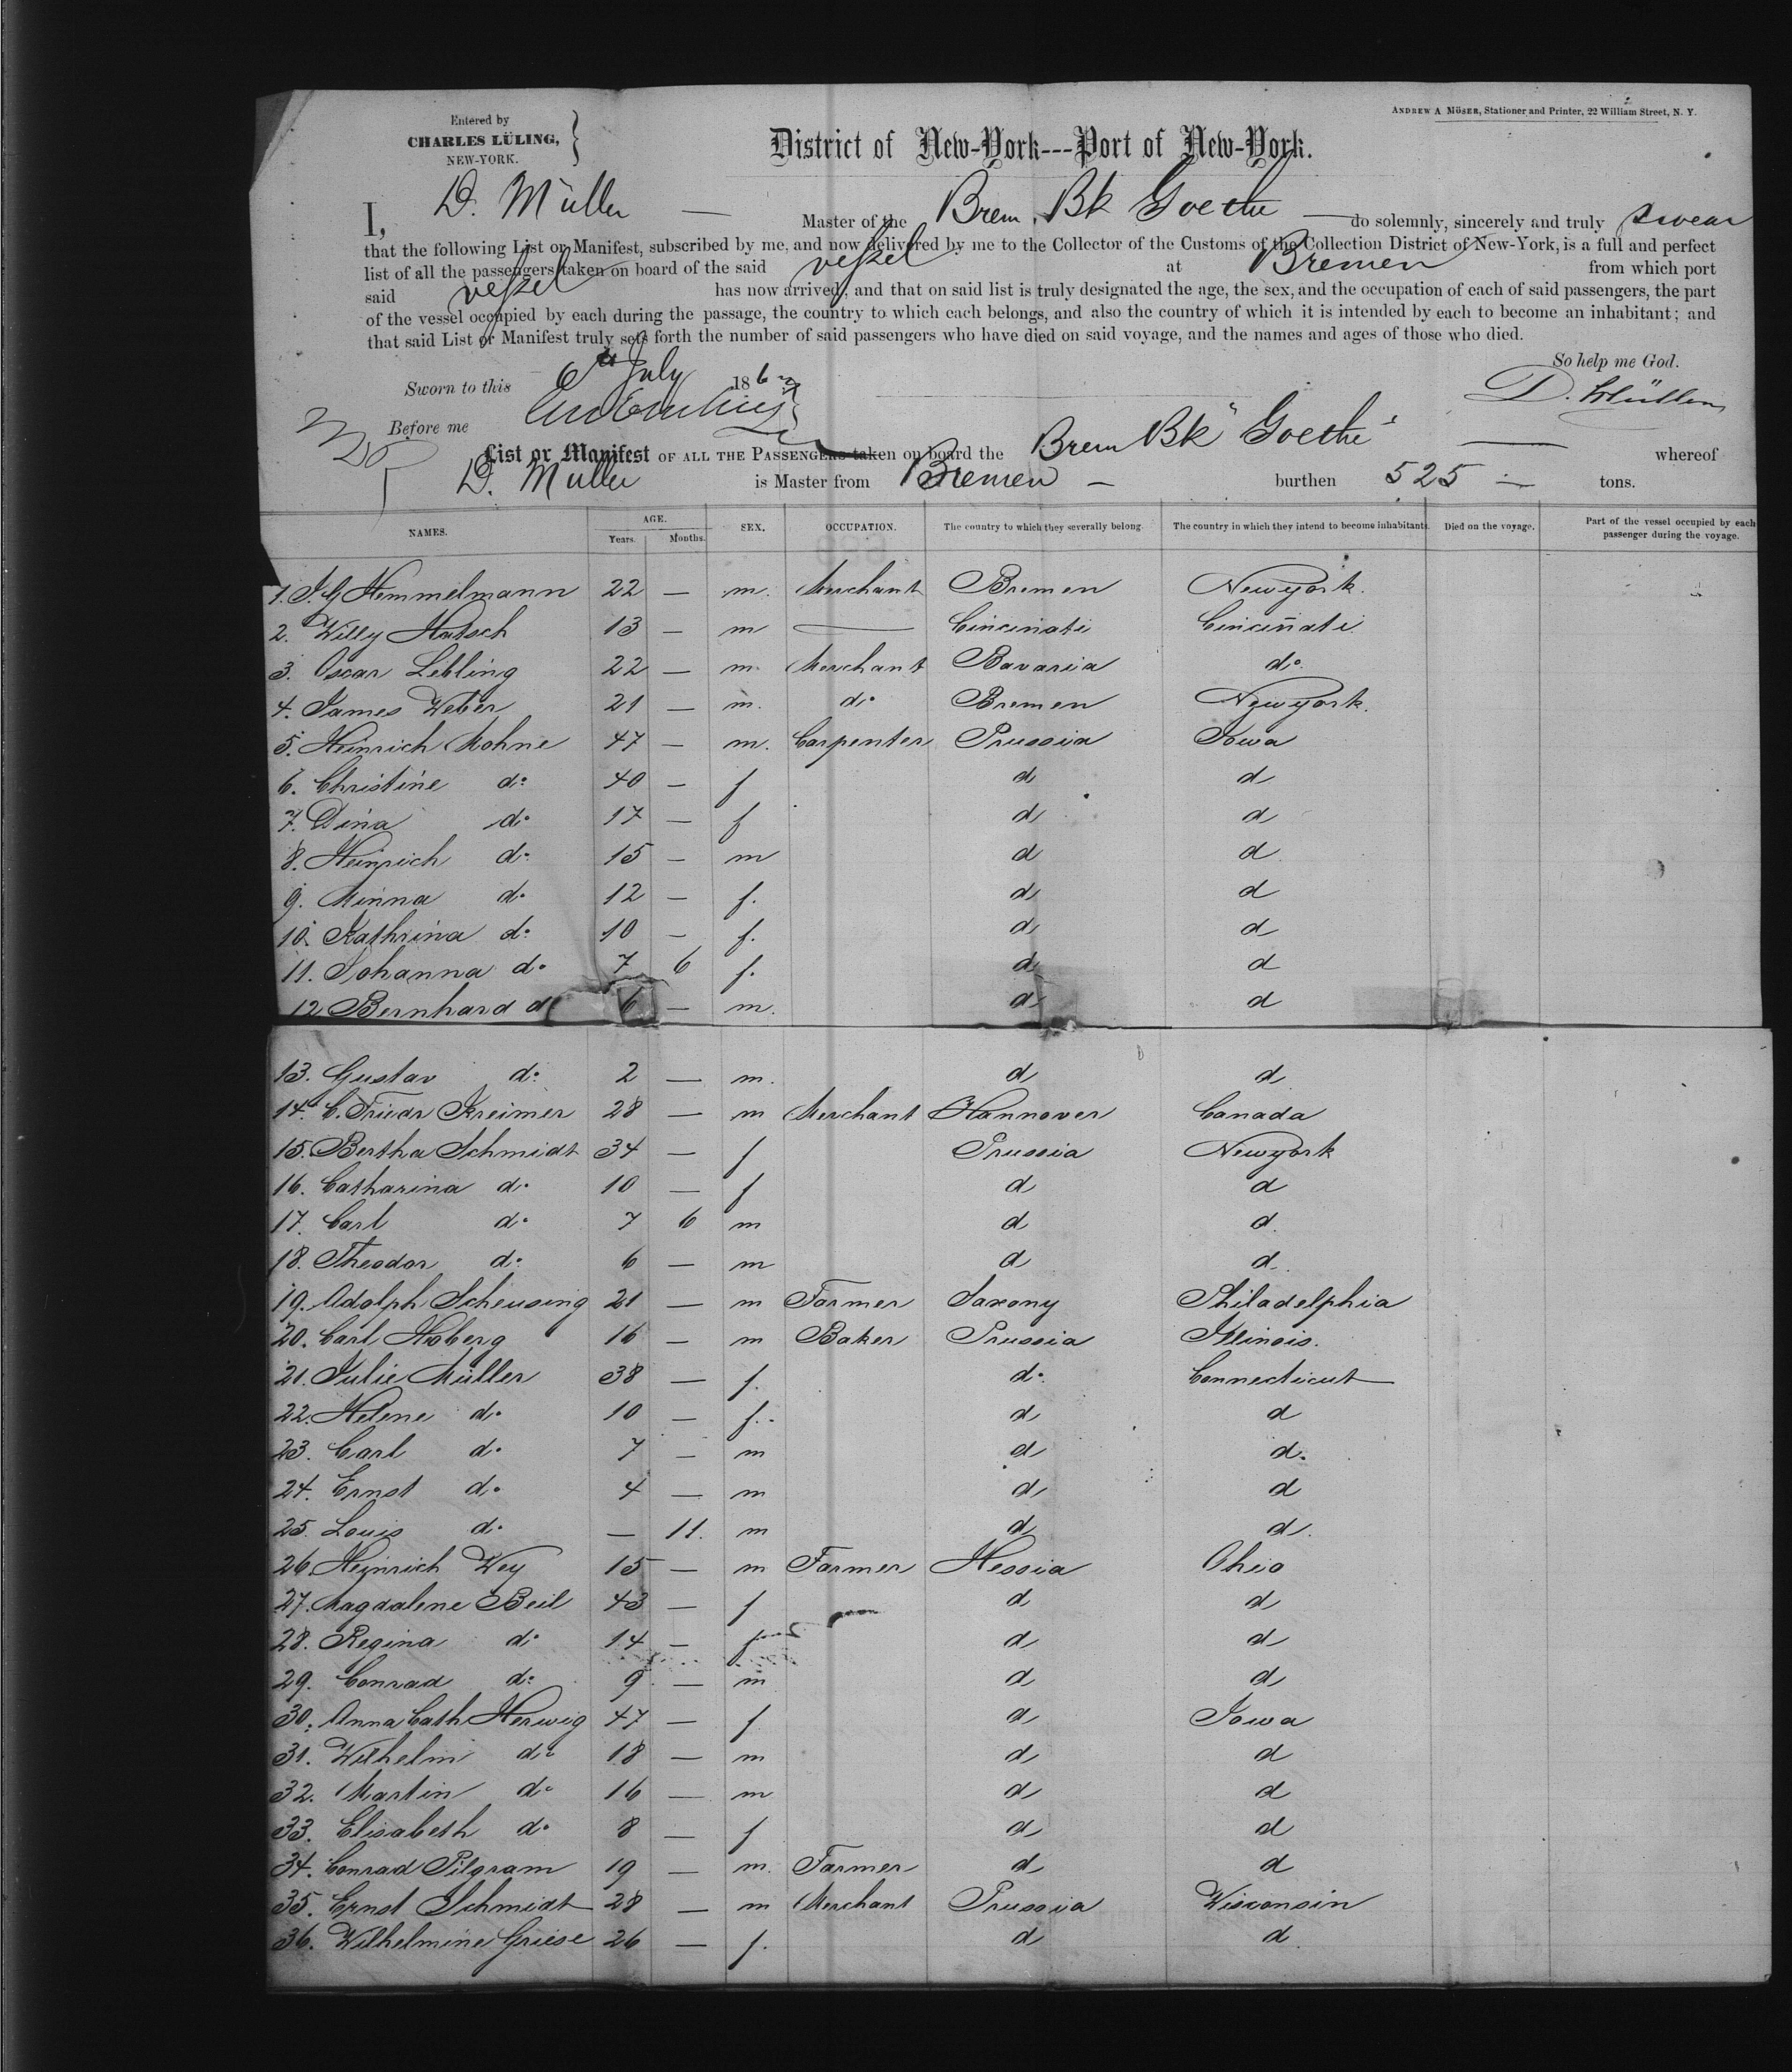 Entered by
CHARLES LÜLING,
NEW-YORK.
ANDREW A MÖSER, Stationer and Printer, 22 William Street, N. Y.
District of New-York---Port of New-York.
I, D. Müller — Master of the Brem. Bk Goethe — do solemnly, sincerely and truly swear
that the following List or Manifest, subscribed by me, and now delivered by me to the Collector of the Customs of the Collection District of New-York, is a full and perfect
list of all the passengers taken on board of the said vessel at Bremen from which port
said vessel has now arrived, and that on said list is truly designated the age, the sex, and the occupation of each of said passengers, the part
of the vessel occupied by each during the passage, the country to which each belongs, and also the country of which it is intended by each to become an inhabitant; and
that said List or Manifest truly sets forth the number of said passengers who have died on said voyage, and the names and ages of those who died.
So help me God.
Sworn to this 6th July 186
D. Müller
Before me
List or Manifest OF ALL THE PASSENGERS taken on board the Brem Bk "Goethe" — whereof
D. Muller is Master from Bremen — burthen 525 — tons.
NAMES. AGE. Years. Months. SEX. OCCUPATION. The country to which they severally belong. The country in which they intend to become inhabitants. Died on the voyage. Part of the vessel occupied by each passenger during the voyage.
1. J. G Hemmelmann 22 — m. Merchant Bremen Newyork.
2. Willy Hatsch 13 — m — Cincinati Cincin̄ati
3. Oscar Lebling 22 — m. Merchant Bavaria do.
4. James Weber 21 — m. do Bremen Newyork.
5. Heinrich Mohne 47 — m. Carpenter Prussia Iowa
6. Christine do 40 — f d d
7. Dina do 17 — f d d
8. Heinrich do 15 — m d d
9. Minna do 12 — f. d d
10. Kathrina do 10 — f. d d
11. Johanna do 7 6 f. d d
12 Bernhard d 6 — m. d d
13. Gustav do 2 — m. d d
14. C. Friedr Kreimer 28 — m Merchant Hannover Canada
15. Bertha Schmidt 34 — f Prussia Newyork
16. Catharina do 10 — f d d
17. Carl do 7 6 m d d.
18. Theodor do 6 — m d d.
19. Adolph Scheusing 21 — m Farmer Saxony Philadelphia
20. Carl Hoberg 16 — m Baker Prussia Illinois.
21. Julie Müller 38 — f. do. Connecticut
22. Helene do 10 — f. d d
23. Carl do 7 — m d d.
24. Ernst do 4 — m d d
25. Louis do — 11. m d d.
26 Heinrich Wey 15 — m Farmer Hessia Ohio
27. Magdalene Beil 43 — f d d
28. Regina do 14 — f d d
29. Conrad do 9 — m d d
30. Anna Cath Herwig 47 — f d Iowa
31. Wilhelm do 18 — m d d
32. Martin do 16 — m d d
33. Elisabeth do 8 — f d d
34. Conrad Pilgram 19 — m. Farmer d d
35. Ernst Schmidt 28 — m Merchant Prussia Wisconsin
36. Wilhelmine Griese 26 — f. d d